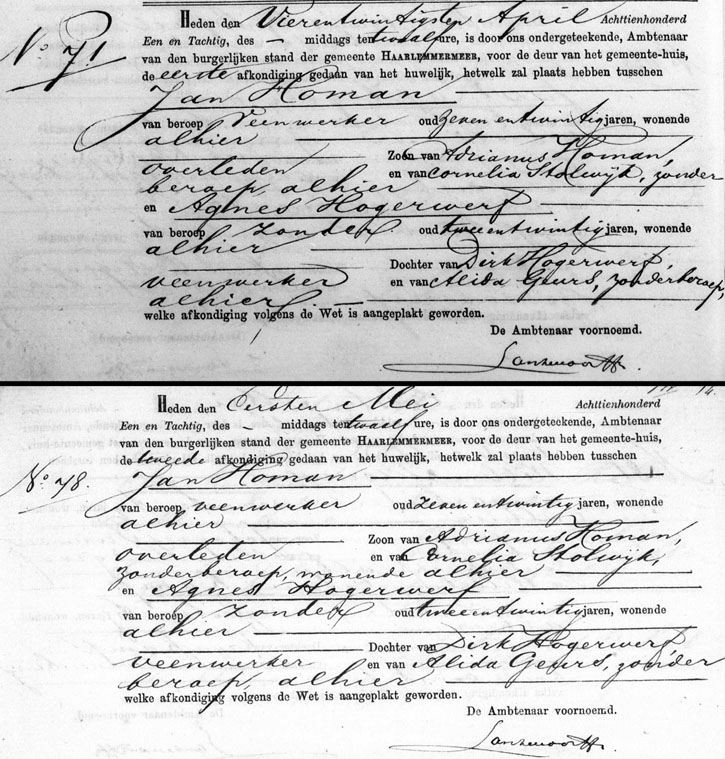 Heden den Vierentwintigsten April Achttienhonderd
No. 71
Een en Tachtig, des – middags ten twaalf ure, is door ons ondergeteekende, Ambtenaar
van den burgerlijken stand der gemeente HAARLEMMERMEER, voor de deur van het gemeente-huis,
de eerste afkondiging gedaan van het huwelijk, hetwelk zal plaats hebben tusschen
Jan Homan
van beroep Veenwerker oud zeven entwintig jaren, wonende
alhier
Zoon van Adrianus Homan,
overleden en van Cornelia Stolwijk, zonder
beroep, alhier
en Agnes Hogerwerf
van beroep zonder oud tweeentwintig jaren, wonende
alhier
Dochter van Dirk Hogerwerf,
veenwerker en van Alida Geurs, zonder beroep,
alhier
welke afkondiging volgens de Wet is aangeplakt geworden.
De Ambtenaar voornoemd.
Heden den Eersten Mei Achttienhonderd
14.
Een en Tachtig, des – middags ten twaalf ure, is door ons ondergeteekende, Ambtenaar
van den burgerlijken stand der gemeente HAARLEMMERMEER, voor de deur van het gemeente-huis,
de tweede afkondiging gedaan van het huwelijk, hetwelk zal plaats hebben tusschen
No. 78.
Jan Homan
van beroep veenwerker oud zeven entwintig jaren, wonende
alhier
Zoon van Adrianus Homan,
overleden en van Cornelia Stolwijk,
zonder beroep, wonende alhier
en Agnes Hogerwerf
van beroep zonder oud tweeentwintig jaren, wonende
alhier
Dochter van Dirk Hogerwerf,
veenwerker en van Alida Geurs, zonder
beroep, alhier
welke afkondiging volgens de Wet is aangeplakt geworden.
De Ambtenaar voornoemd.